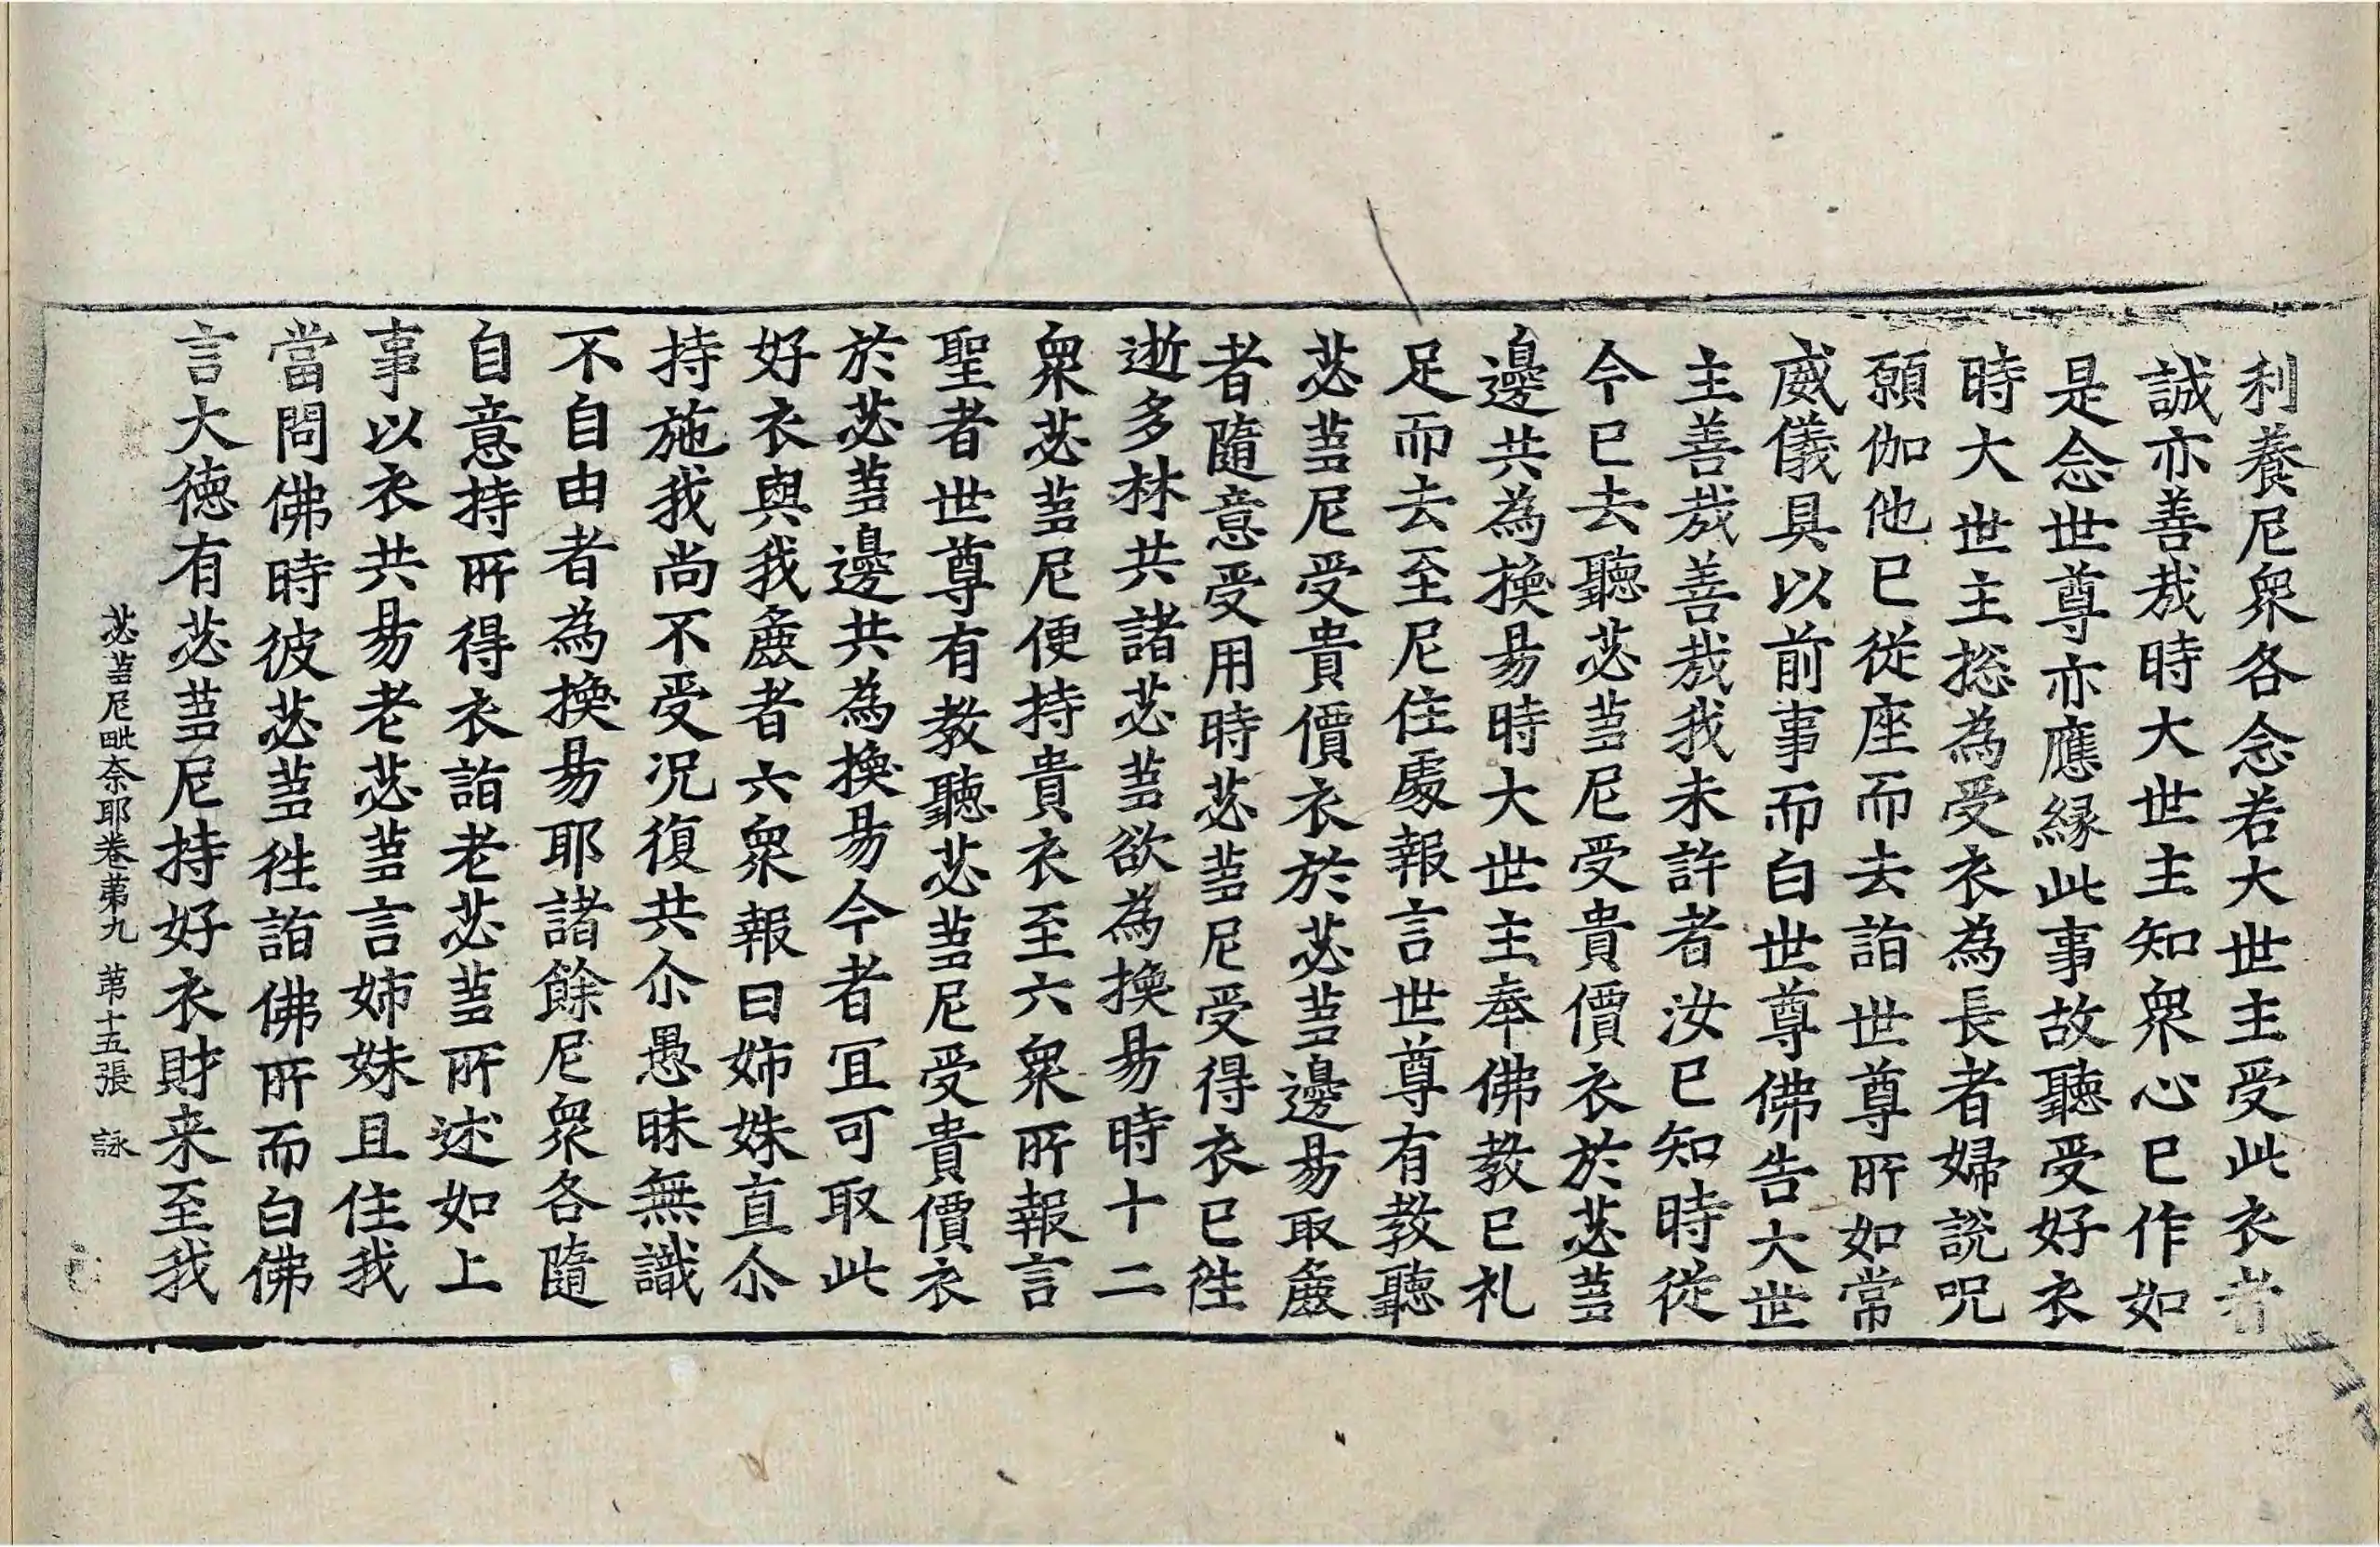 利養尼衆各念若大世主受此衣者
誠亦善㢤時大世主知衆心已作如
是念世尊亦應縁此事故聽受好衣
時大世主捴為受衣為長者婦說呪
願伽他已從座而去詣世尊所如常
威儀具以前事而白世尊佛告大世
主善㢤善㢤我未許者汝已知時從
今已去聽苾蒭尼受貴價衣於苾蒭
邊共為換易時大世主奉佛教已礼
足而去至尼住處報言世尊有教聽
苾蒭尼受貴價衣於苾蒭邊易取麁
者隨意受用時苾蒭尼受得衣已徃
逝多林共諸苾蒭欲為換易時十二
衆苾蒭尼便持貴衣至六衆所報言
聖者世尊有教聽苾蒭尼受貴價衣
於苾蒭邊共為換易今者冝可取此
好衣與我麁者六衆報曰姉妹直尒
持施我尚不受况復共尒愚昧無識
不自由者為換易耶諸餘尼衆各隨
自意持所得衣詣老苾蒭所述如上
事以衣共易老苾蒭言姉妹且住我
當問佛時彼苾蒭徃詣佛所而白佛
言大徳有苾蒭尼持好衣財来至我
苾蒭尼毗奈耶卷第九 第十五張 詠